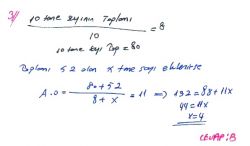 3/
10 tane sayının Toplamı
10
= 8
10 tane sayı Top = 80
Toplamı 52 olan x tane sayı eklenirse
A.O = 80+52
8+x
= 11 => 132 = 88+11x
44 = 11x
x = 4
CEVAP: B